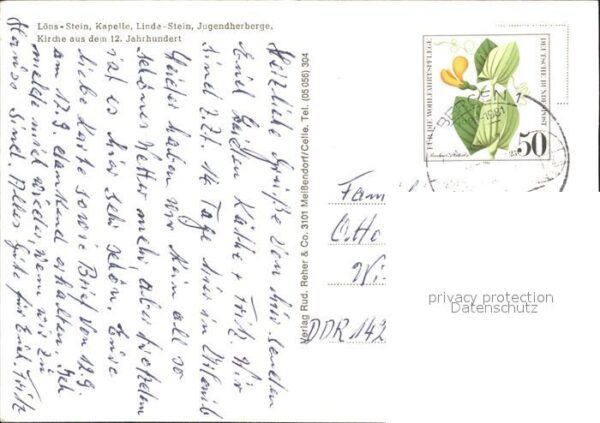 Löns-Stein, Kapelle, Linda-Stein, Jugendherberge,
Kirche aus dem 12. Jahrhundert
Herzliche Grüße von hier senden
Euch Käthe + Fritz. Wir
sind z.Zt. 14 Tage hier in
haben wir kein all so
schönes Wetter mehr aber trotzdem
ist es hier sehr schön. Eure
liebe Karte sowie Brief vom 12.9
am 17.9. dankend erhalten. Ich
melde mich wieder, wenn wir zu
Hause sind. Alles Gute für Euch. Fritz
Verlag Rud. Reher & Co. 3101 Meißendorf/Celle. Tel. (05 056) 304
FÜR DIE WOHLFAHRTSPFLEGE
DEUTSCHE BUNDESPOST
50
BERGEN
Fam
Otto
Wi
DDR 142
privacy protection
Datenschutz